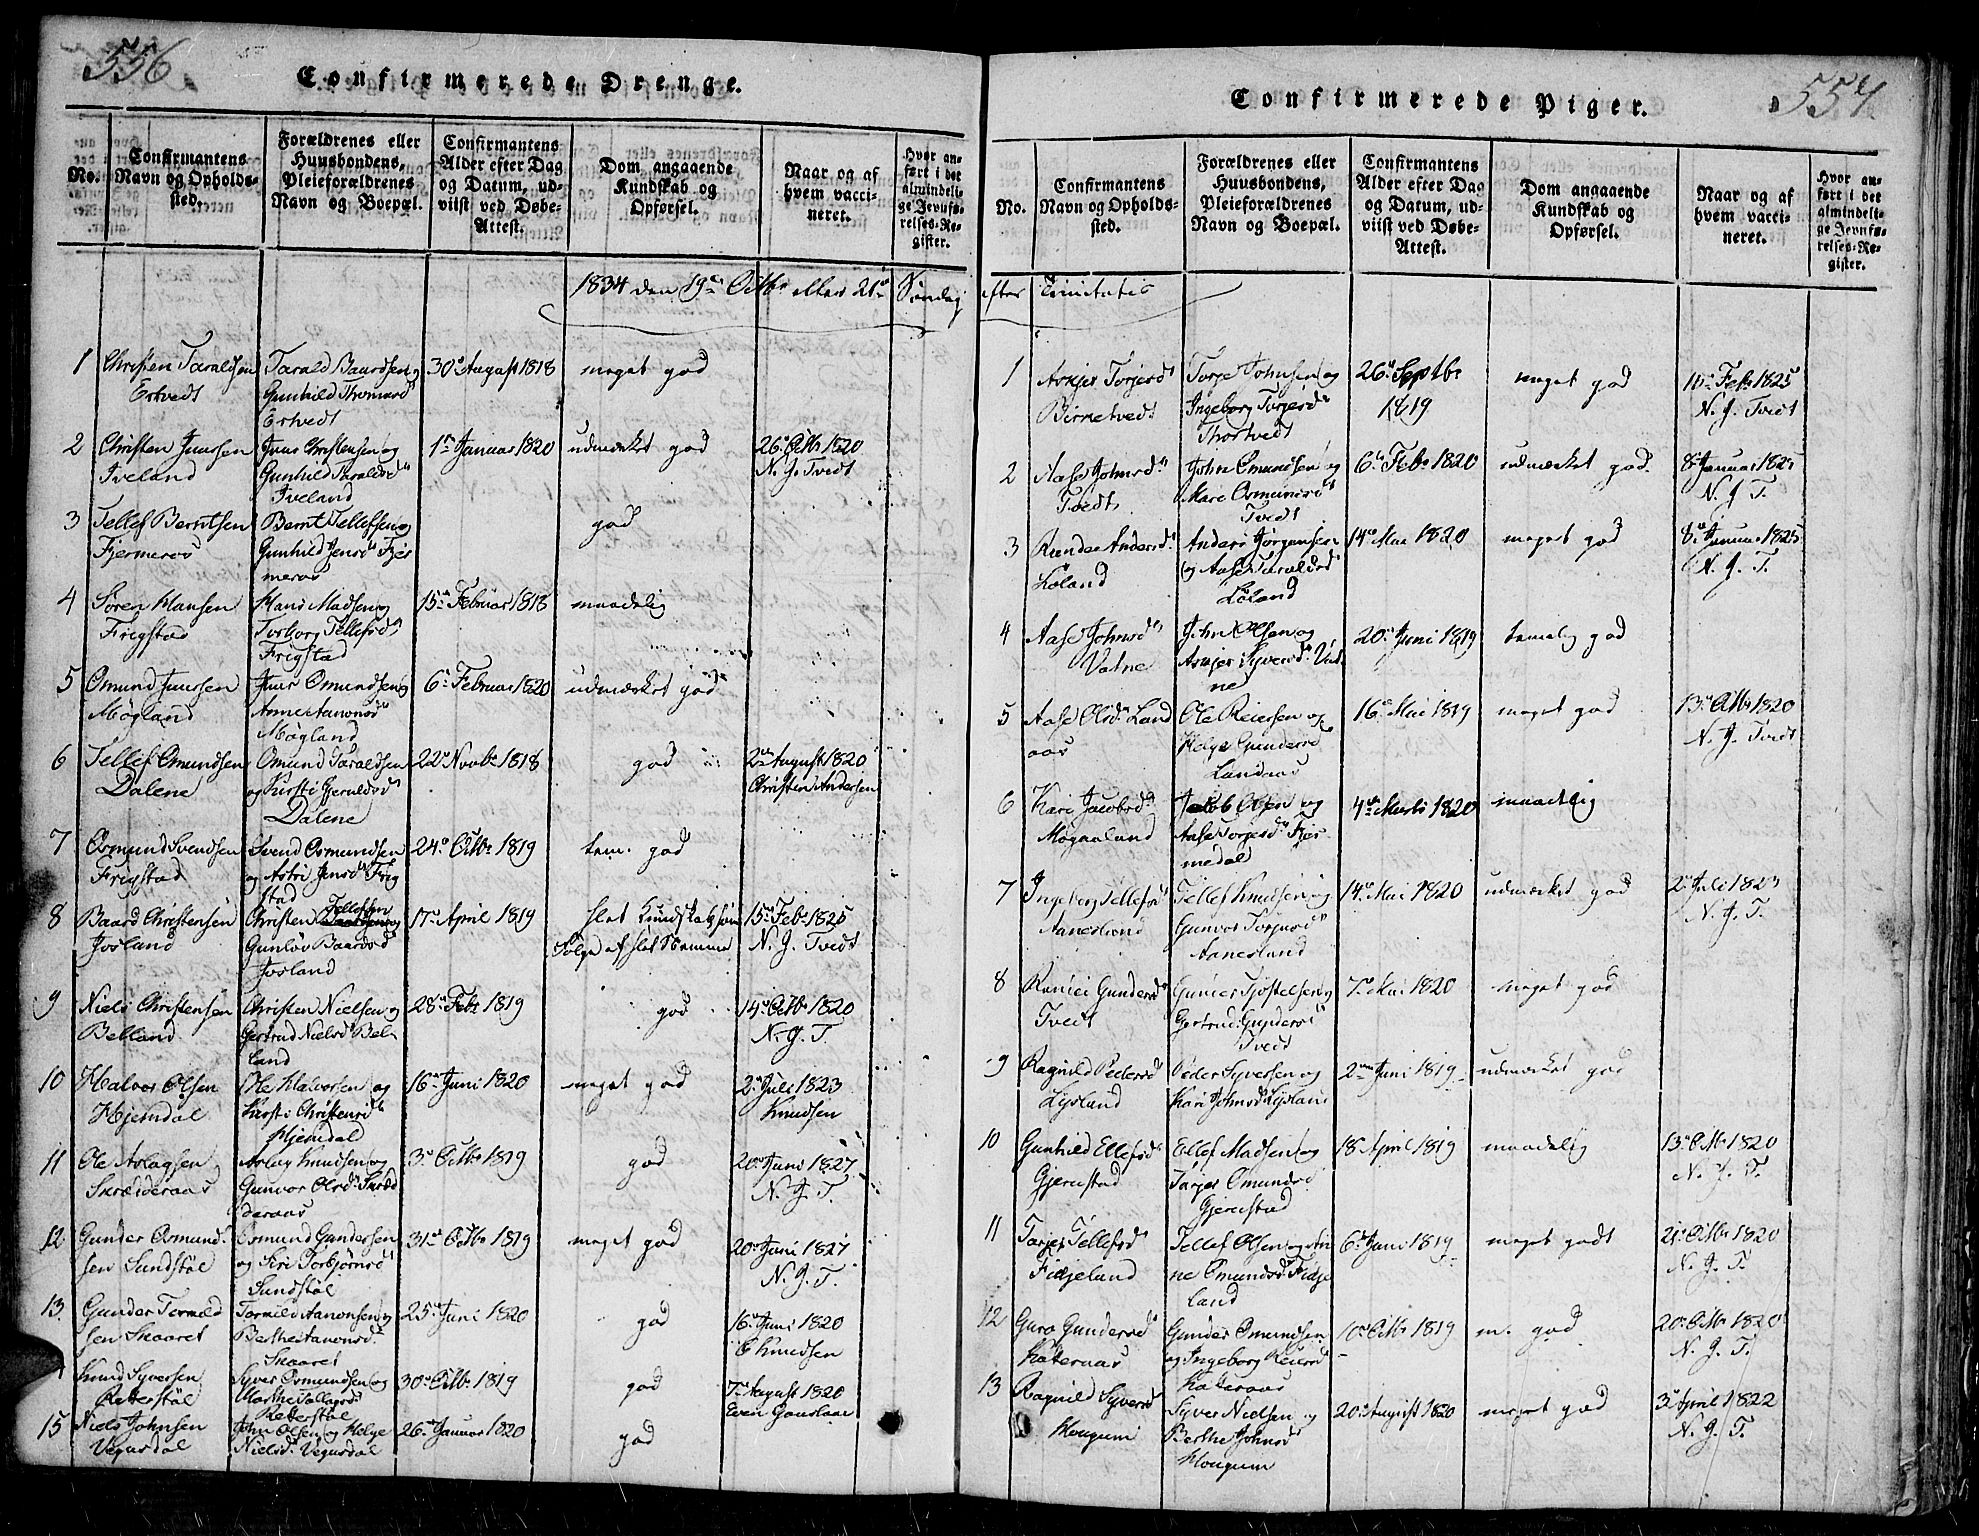 556
Confirmerede Drenge.
No.
Confirmantens Navn og Opholds-sted.
Forældrenes eller Huusbondens, Pleieforældrenes Navn og Boepæl.
Confirmantens Alder efter Dag og Datum, ud-viist ved Døbe-Attest.
Dom angaaende Kundskab og Opførsel.
Naar og af hvem vacci-neret.
Hvor an-ført i det almindeli-ge Jevnfø-relses-Re-gister.
1834 den 19de Octbr eller 21de Søndag efter Trinitatis
1 Christen Taraldsen
Ertvedt
Tarald Baardsen og
Gunhild Thomasd
Ertvedt
30te August 1818
meget god
2 Christen Juursen
Iveland
Juur Christensen og
Gunhild Taraldsd
Iveland
1ste Januar 1820
udmærket god
26de Octbr 1820
N. J. Tvedt
3 Tellef Berntsen
Fjermeros
Bernt Tellefsen og
Gunhild Jensd Fjer
meros
god
4 Søren Hansen
Frigstad
Hans Madsen og
Torborg Tellefsd
Frigstad
15de Februar 1818
maadelig
5 Omund Juursen
Møgland
Juur Omundsen og
Anne Aanonsd
Møgland
6te Februar 1820
udmærket god
6 Tellef Omundsen
Dalene
Omund Taraldsen
og Kirsti Gjeruldsd
Dalene
22de Novbr 1818
god
2den August 1820
Christen Andersen
7 Osmund Svendsen
Frigstad
Svend Osmundsen
og Astri Jensd Frig
stad
24de Octbr 1819
tem. god
8 Baard Christensen
Josland
Christen Tellefsen og
Gunlöv Baardsd
Josland
17de April 1819
slet Kundskab som
Følge af slet Nemme
15de Febr 1825
N. J. Tvedt
9 Niels Christensen
Belland
Christen Nielsen og
Gertrud Nielsd Bel-
land
28de Febr 1819
god
14de Octbr 1820
N. J. T.
10 Halvor Olsen
Hjemdal
Ole Halvorsen og
Kirsti Christensd
Hjemdal
16de Juni 1820
meget god
2den Juli 1823
Knudsen
11 Ole Aslagsen
Skrædderaas
Aslag Knudsen og
Gunvor Olsd Skræd
deraas
3die Octbr 1819
god
20de Juni 1827
N. J. T.
12 Gunder Osmund-
sen Sundstøl
Osmund Gundersen
og Siri Torbjørnsd
Sundstøl
31te Octbr 1819
meget god
20de Juni 1827
N. J. T.
13 Gunder Tormild
sen Skaaret
Tormild Aanonsen og
Berthe Aanonsd
Skaaret
25de Juni 1820
god
16de Juni 1820
E Knudsen
Knud Syversen
Reterstøl
Syver Osmundsen og
Marthe Tallagsd
Reterstøl
30te Octbr 1819
god
7de August 1820
Even Gauslaae
15 Niels Johnsen
Vegusdal
John Olsen og Helge
Nielsd Vegusdal
26de Januar 1820
god
557
Confirmerede Piger.
No.
Confirmantens Navn og Opholds-sted.
Forældrenes eller Huusbondens, Pleieforældrenes Navn og Boepæl.
Confirmantens Alder efter Dag og Datum, ud-viist ved Døbe-Attest.
Dom angaaende Kundskab og Opførsel.
Naar og af hvem vacci-neret.
Hvor an-ført i det almindeli-ge Jevnfø-relses-Re-gister.
1 Asxjer Torjersd
Birketvedt
Torje Johnsen og
Ingeborg Torjersd
Thortvedt
26de Septbr
1819
meget god
Febr 1825
N. J. Tvedt
2 Aase Johnsd
Tvedt
John Omundsen og
Mari Osmundsd
Tvedt
6te Febr 1820
udmærket god
8de Januar 1825
N. J. T.
3 Andersd
Loland
Anders Jörgensen
og Aase Taraldsd
Loland
14de Mai 1820
meget god
8de Januar 1825
N. J. T.
4 Aase Johnsd
Vatne
John Olsen og
Asxjer Syversd Vat
ne
20de Juni 1819
temelig god
5 Aase Olsd Land
aas
Ole Reiersen og
Helge Gundersd
Landaas
16de Mai 1819
meget god
13de Octbr 1820
N. J. Tvedt
6 Kari Jacobsd
Mogaaland
Jacob Olsen og
Aase Torjersd Fjer
medal
4de Marts 1820
maadelig
7 Ingeborg Tellefsd
Aanesland
Tellef Knudsen og
Gunvor Torjusd
Aanesland
14de Mai 1820
udmærket god
2den Juli 1823
N. J. T.
8 Gundersd
Tvedt
Gunder Tjöstelsen og
Gjertrud Gundersd
Tvedt
7de Mai 1820
meget god
9 Ragnild Pedersd
Lysland
Peder Syversen og
Kari Johnsd Lysland
2den Juni 1819
udmærket god
10 Gunhild Ellefsd
Gjerustad
Ellef Madsen og
Tarjer Omundsd
Gjerustad
18de April 1819
maadelig
13de Octbr 1820
N. J. T.
11 Tarjer Tellefsd
Fidjeland
Tellef Olsen og An
ne Omundsd Fidje
land
6te Juni 1819
meget godt
21de Octbr 1820
N. J. T.
12 Guro Gundersd
Kateraas
Gunder Omundsen
og Ingeborg Reiersd
Kateraas
10de Octbr 1819
m. god
20de Octbr 1820
N. J. T.
13 Ragnild Syversd
Hougum
Syver Nielsen og
Berthe Johnsd
Hougum
20de August 1820
meget god
3die April 1822
N. J. T.